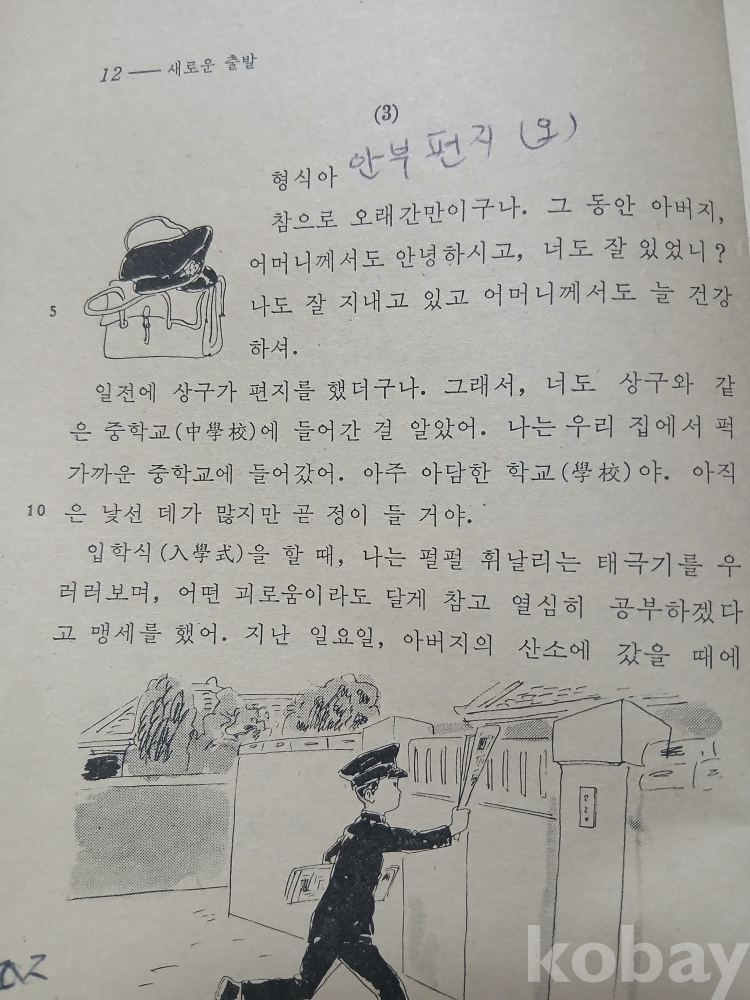 12 — 새로운 출발
(3)
안부 편지 (오)
형식아
참으로 오래간만이구나. 그 동안 아버지,
어머니께서도 안녕하시고, 너도 잘 있었니?
5 나도 잘 지내고 있고 어머니께서도 늘 건강
하셔.
일전에 상구가 편지를 했더구나. 그래서, 너도 상구와 같
은 중학교(中學校)에 들어간 걸 알았어. 나는 우리 집에서 퍽
가까운 중학교에 들어갔어. 아주 아담한 학교(學校)야. 아직
10 은 낯선 데가 많지만 곧 정이 들 거야.
입학식(入學式)을 할 때, 나는 펄펄 휘날리는 태극기를 우
러러보며, 어떤 괴로움이라도 달게 참고 열심히 공부하겠다
고 맹세를 했어. 지난 일요일, 아버지의 산소에 갔을 때에
kobay